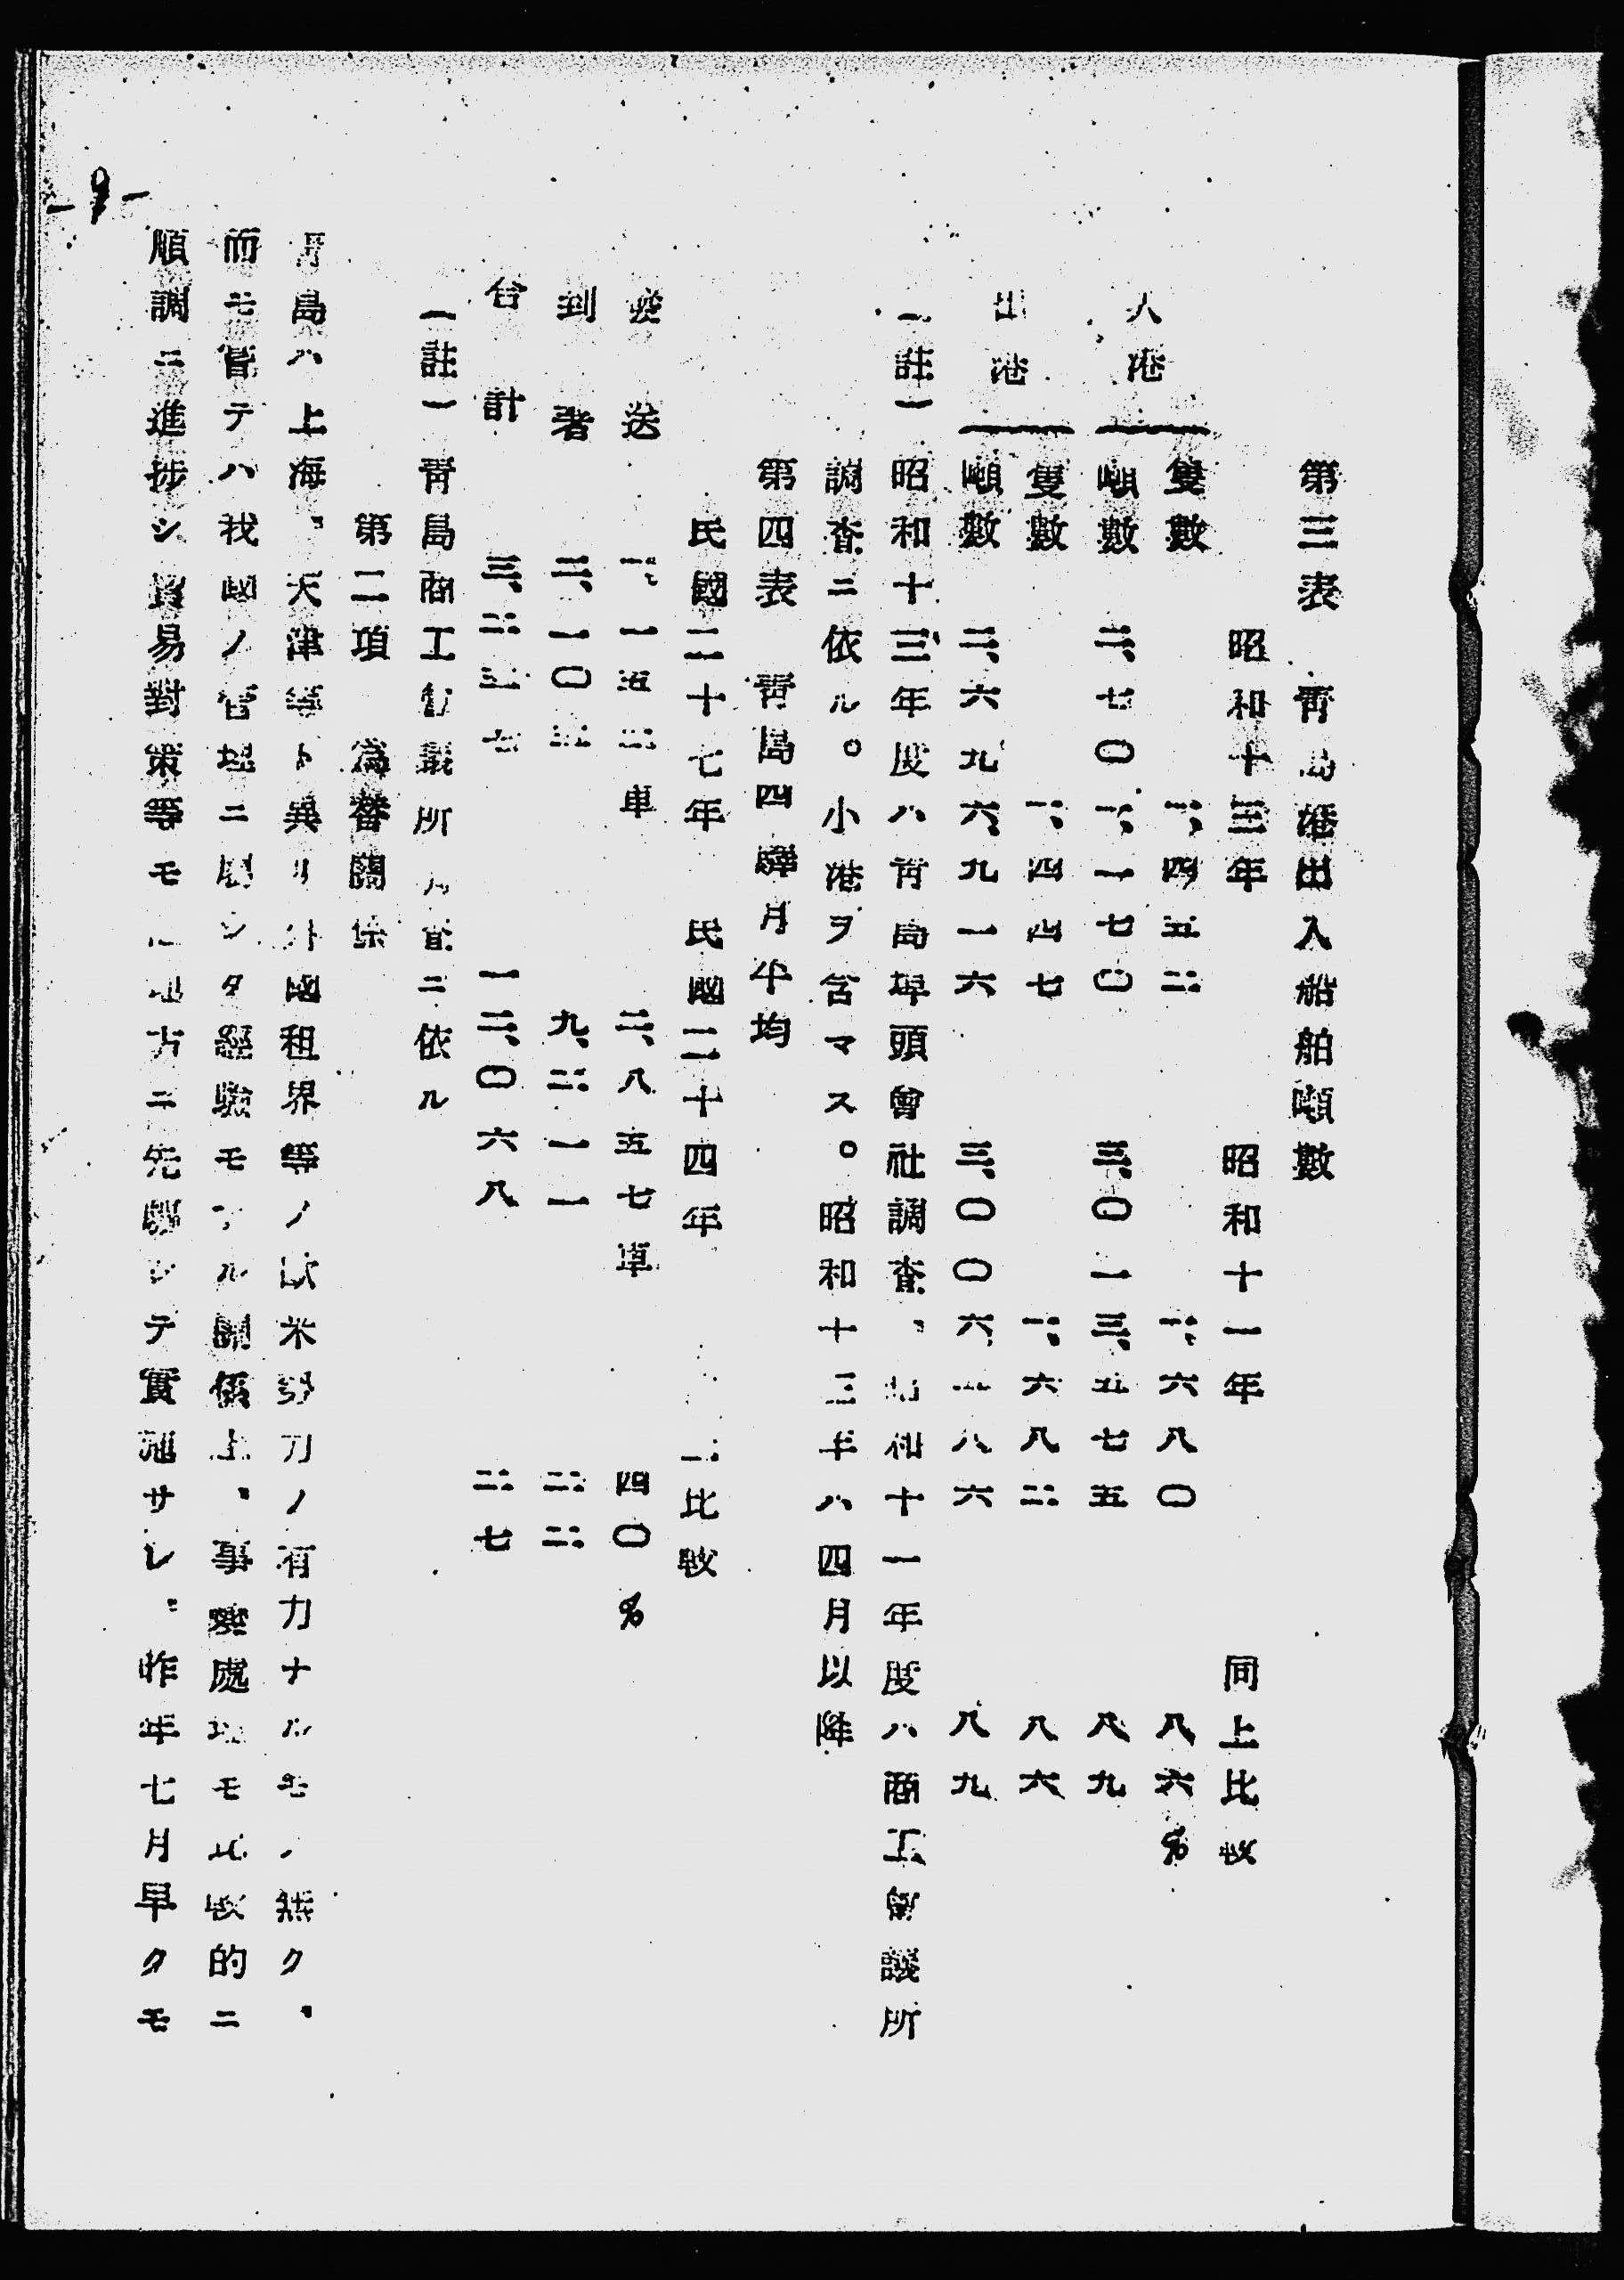 第三表　靑島港出入船舶噸數
昭和十三年　昭和十一年　同上比較
入港　隻數　一、四五二　一、六八〇　八六%
噸數　二、七〇一、一七〇　三、〇一三、五七五　八九
出港　隻數　一、四四七　一、六八二　八六
噸數　二、六九六、九一六　三、〇〇六、八六　八九
(註)昭和十三年度ハ靑島埠頭會社調査、昭和十一年度ハ商工會議所
調査ニ依ル。小港ヲ含マス。昭和十三年ハ四月以降
第四表　靑島四驛月平均
民國二十七年　民國二十四年　比較
發送　一、一五二車　二、八五七車　四〇%
到着　二、一〇五　九、二一一　二二
合計　三、二五七　一二、〇六八　二七
(註)靑島商工會議所月報ニ依ル
第二項　爲替關係
靑島ハ上海、天津等ト異リ外國租界等ノ歐米勢力ノ有力ナルモノ無ク、
而モ嘗テハ我國ノ管理ニ屬シタ經驗モアル關係上、事變處理モ比較的ニ
順調ニ進捗シ貿易對策等モ他地方ニ先驅シテ實施サレ、昨年七月早クモ
-9-